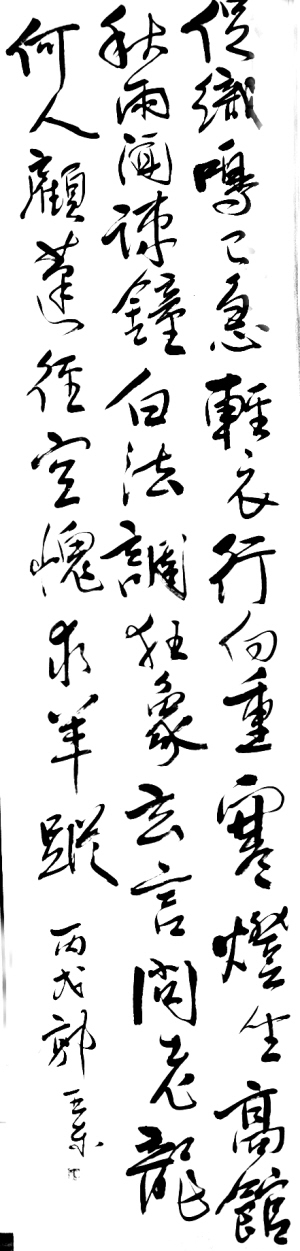 促織鳴已急輕衣行向重寒燈坐高館
秋雨聞疎鐘白法調狂象玄言問老龍
何人顧蓬徑空愧求羊蹤
丙戌鄭